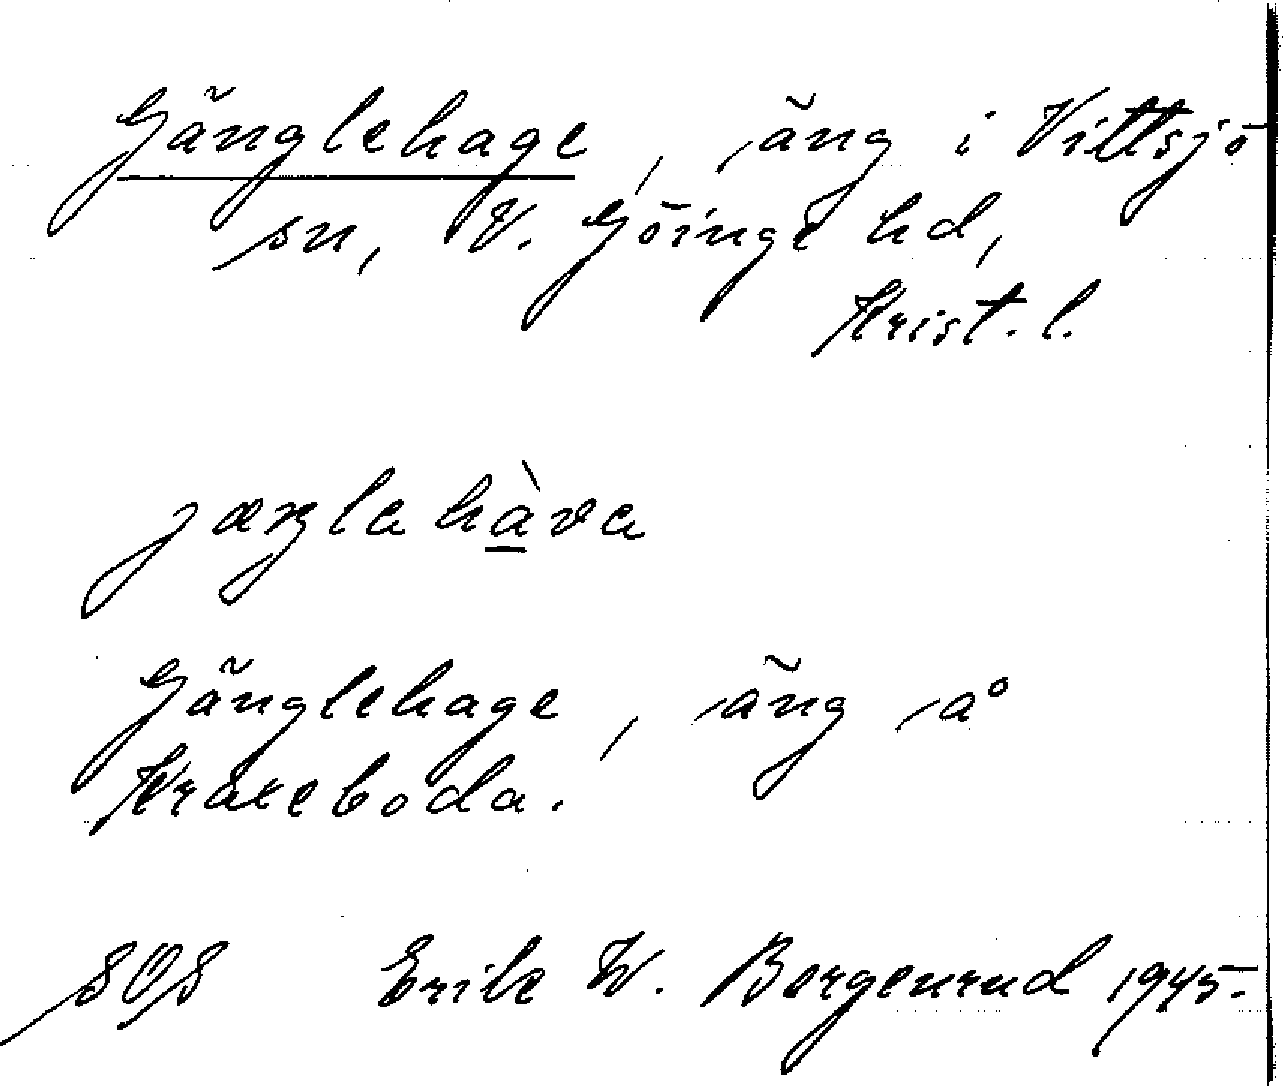 Gänglehage, äng i Vittsjö
sn, V. Göinge hd,
Krist. l.
jæŋlahàva
Gänglehage, äng å
Kråkeboda.
SOS Erik W. Borgenrud 1945.